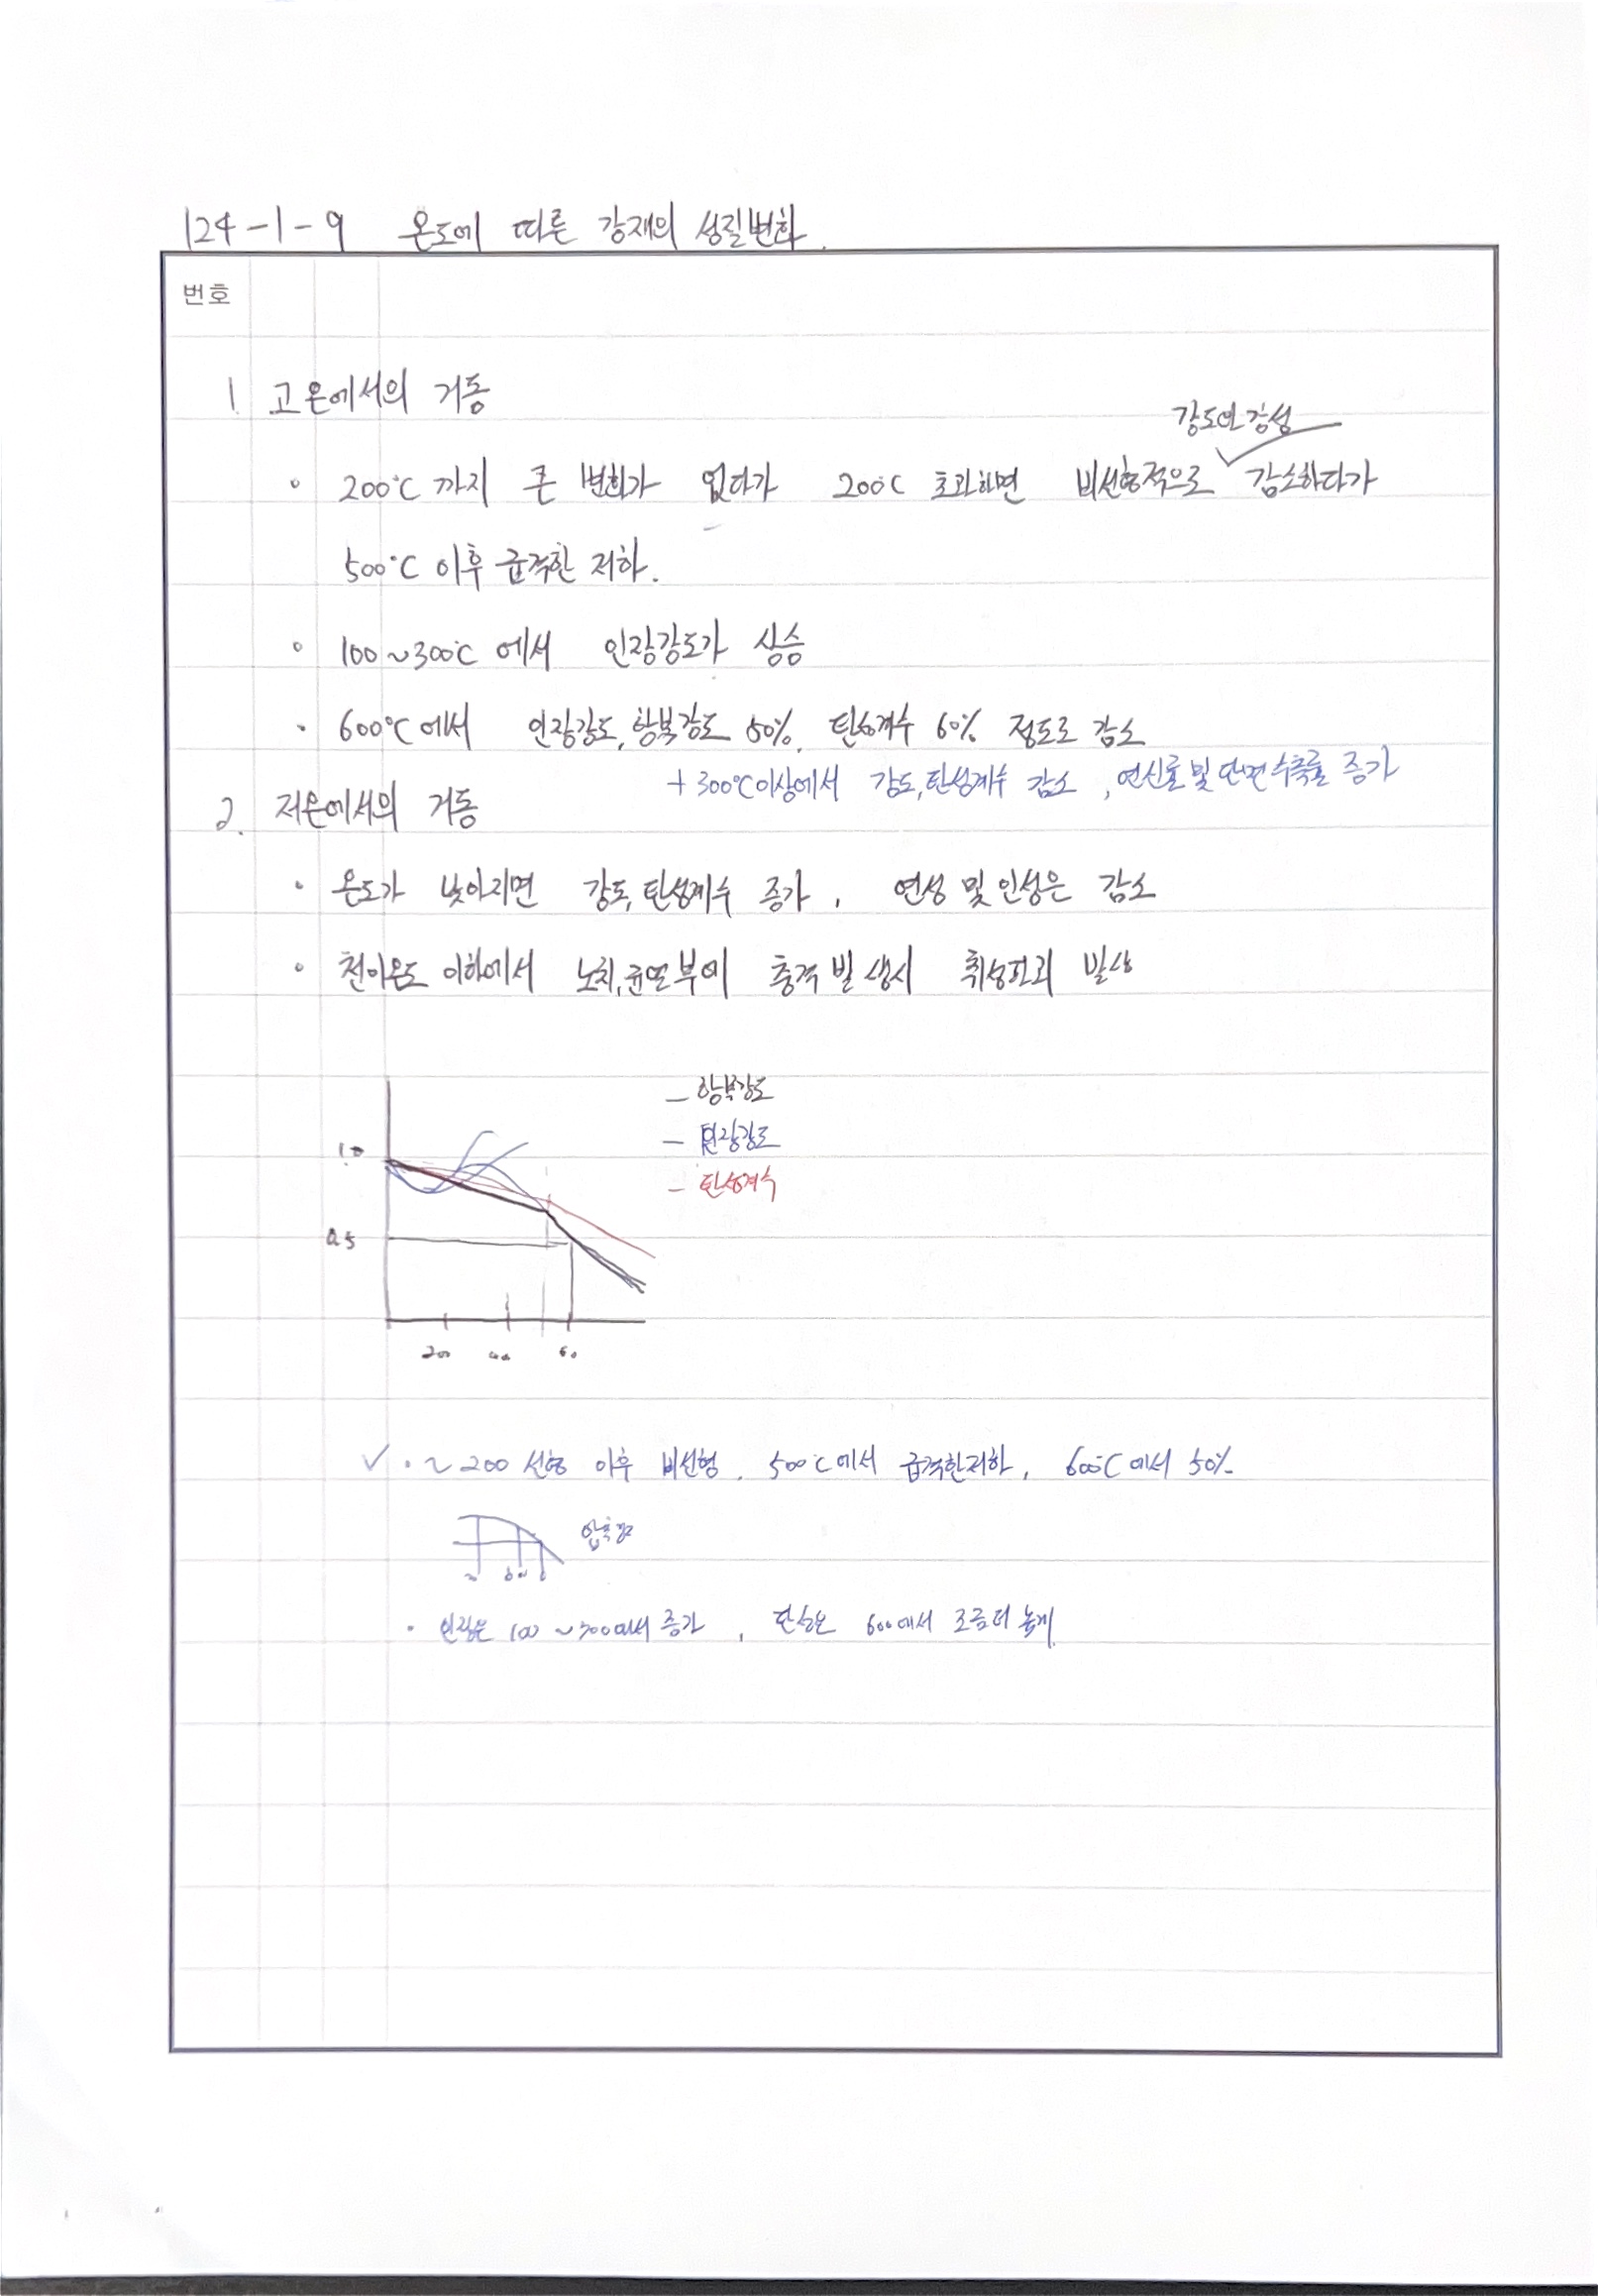 124-1-9 온도에 따른 강재의 성질변화.
번호
1. 고온에서의 거동
강도와 강성
◦ 200℃ 까지 큰 변화가 없다가 200℃ 초과하면 비선형적으로 감소하다가
500℃ 이후 급격한 저하.
◦ 100~300℃ 에서 인장강도가 상승
· 600℃에서 인장강도, 항복강도 50%, 탄성계수 60% 정도로 감소
+ 300℃이상에서 강도, 탄성계수 감소, 연신률 및 단면수축률 증가
2. 저온에서의 거동
· 온도가 낮아지면 강도, 탄성계수 증가, 연성 및 인성은 감소
· 천이온도 이하에서 노치, 균열부에 충격 발생시 취성파괴 발생
– 항복강도
1.0
– 인장강도
– 탄성계수
0.5
200 400 60
✓ · ~200 선형 이후 비선형, 500℃에서 급격한저하, 600℃에서 50%
· 인장은 100~300에서 증가, 탄성은 600에서 조금더 높게